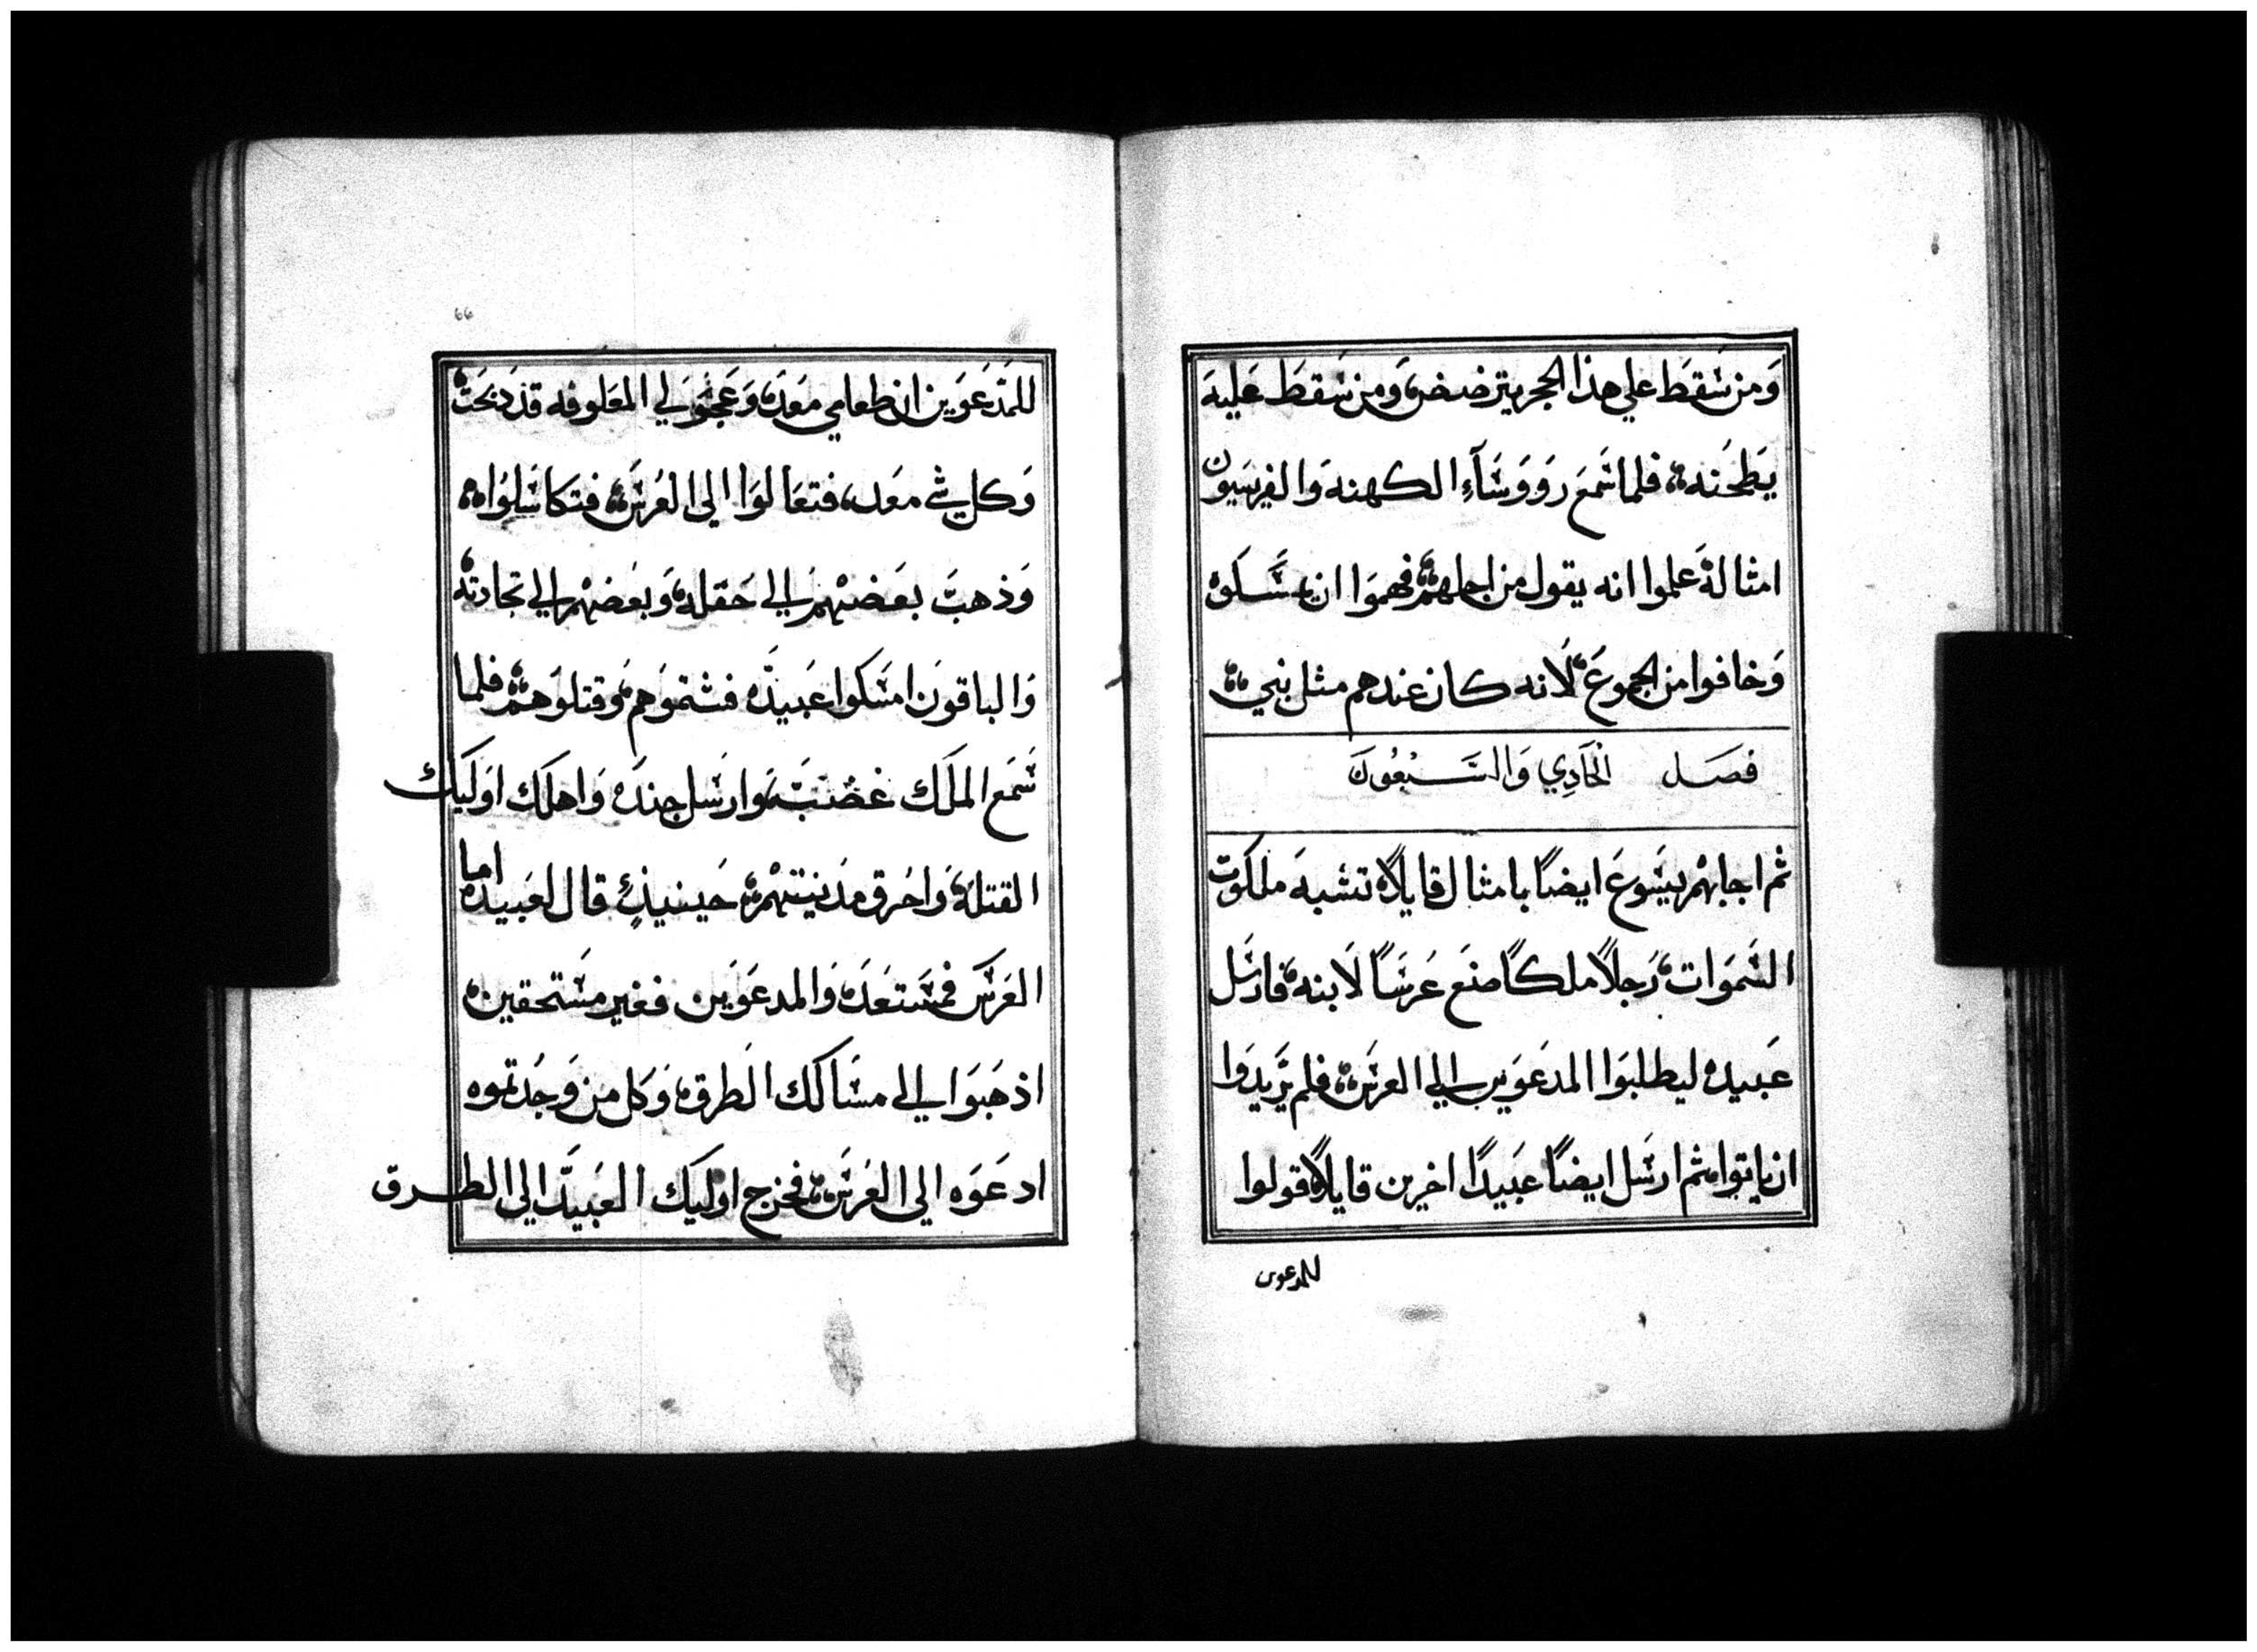 ومن سقط علي هذا الحجر يترضض، ومن سقط عليه
يطحنه، فلما سمع رووسآء الكهنه والفريسيون
امثاله علموا انه يقول من اجلهم، فهموا ان يمسكوه
وخافوا من الجموع، لانه كان عندهم مثل نبي،
فصل الحادي والسبعون
ثم اجابهم يسوع ايضًا بامثال قايلاً، تشبه ملكوت
السموات، رجلاً ملكًا صنع عرسًا لابنه، فارسل
عبيده ليطلبوا المدعوين الي العرس، فلم يريدوا
ان ياتوا، ثم ارسل ايضًا عبيدًا اخرين قايلاً قولوا
للمدعوين
66
للمدعوين ان طعامي معده، وعجولي المعلوفه قد دبحت،
وكل شي معد، فتعالوا الي العرس، فتكاسلوا،
وذهب بعضهم الي حقله، وبعضهم الي تجارته،
والباقون امسكوا عبيده فشتموهم، وقتلوهم، فلما
سمع الملك غضب، وارسل جنده واهلك اوليك
القتله، واحرق مدينتهم، حينيذٍ قال لعبيده، اما
العرس فمستعده، والمدعوين فغير مستحقين،
اذهبوا الي مسالك الطرق، وكل من وجدتموه
ادعوه الي العرس، فخرج اوليك العبيد الي الطرق